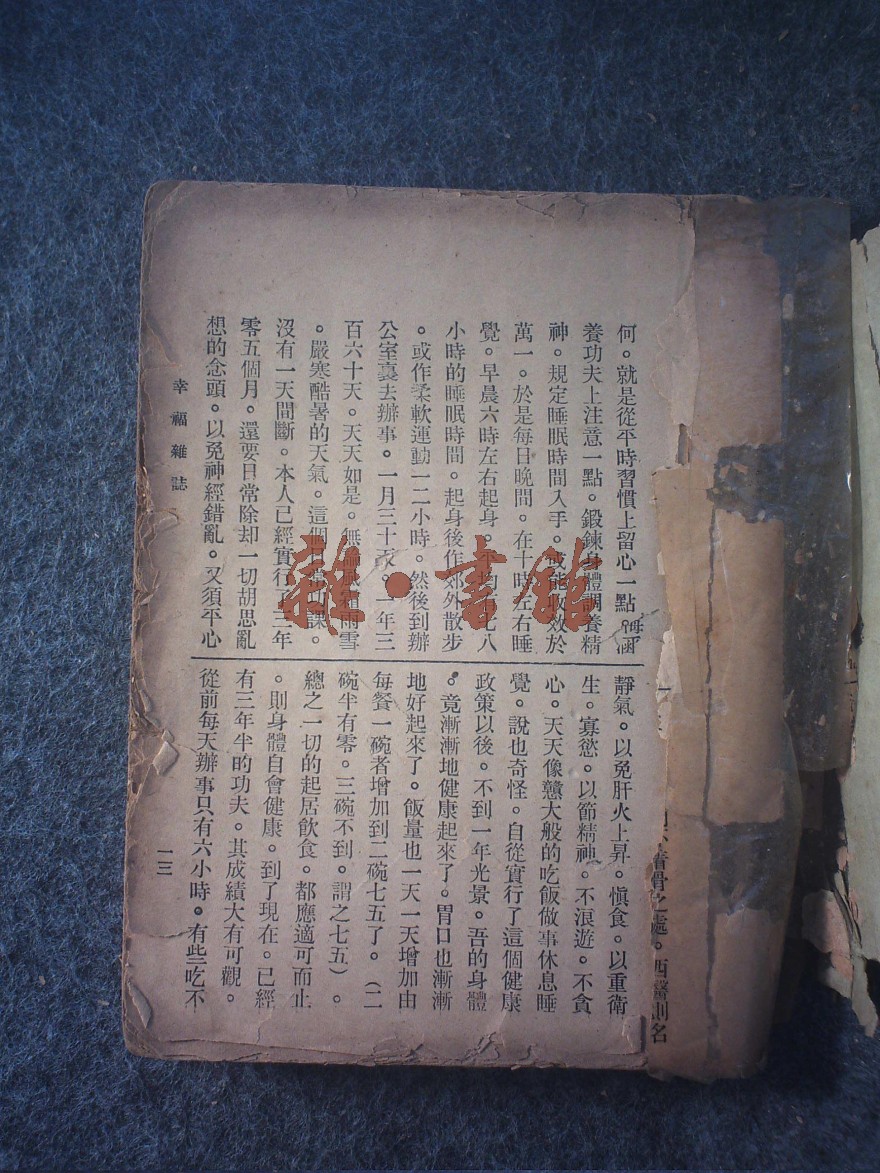 何。就是從平時習慣上留心一點。涵
養功夫上注意一點。鍛鍊身體調養精
神。規定睡眠時間入手。或能收效於
萬一。於是每日晚間。在十時左右睡
覺。早晨六時左右起身。平均七八
小時的睡眠時間。起身後作郊外散步
。或作柔軟運動一二小時。然後到辦
公室裏去辦事。一月三十天。一年三
百六十天。天天如是。無論風和雨雪
。嚴寒酷暑的天氣。這個日常功課。
沒有一天間斷。本人已經實行了三年
零五個月。還要日常除却一切胡思亂
想的念頭。以免神經錯亂。又須平心
靜氣。以免肝火上昇。愼食。以重衛
生。寡慾。以節精神。不浪遊。不貪
心。天天像戇大般的吃飯做事休息睡
覺。說也奇怪。自從實行了這個健康
政策以後。不到一年光景。吾的身體
。竟漸漸地健康起來了。胃口也漸漸
地好起來了。飯量也一天一天增加由
每餐一碗者增加到二碗七五了。（二
碗半有零。三碗不到。謂之七五）。
總之一切的起居飲食。都應適可而止
。則身體自會健康。到了現在。已經
有三年半的功夫。其成績大有可觀。
從前每天辦事只有六小時。有些吃不
幸福雜誌
一三
之處。西醫則名
雜·書館